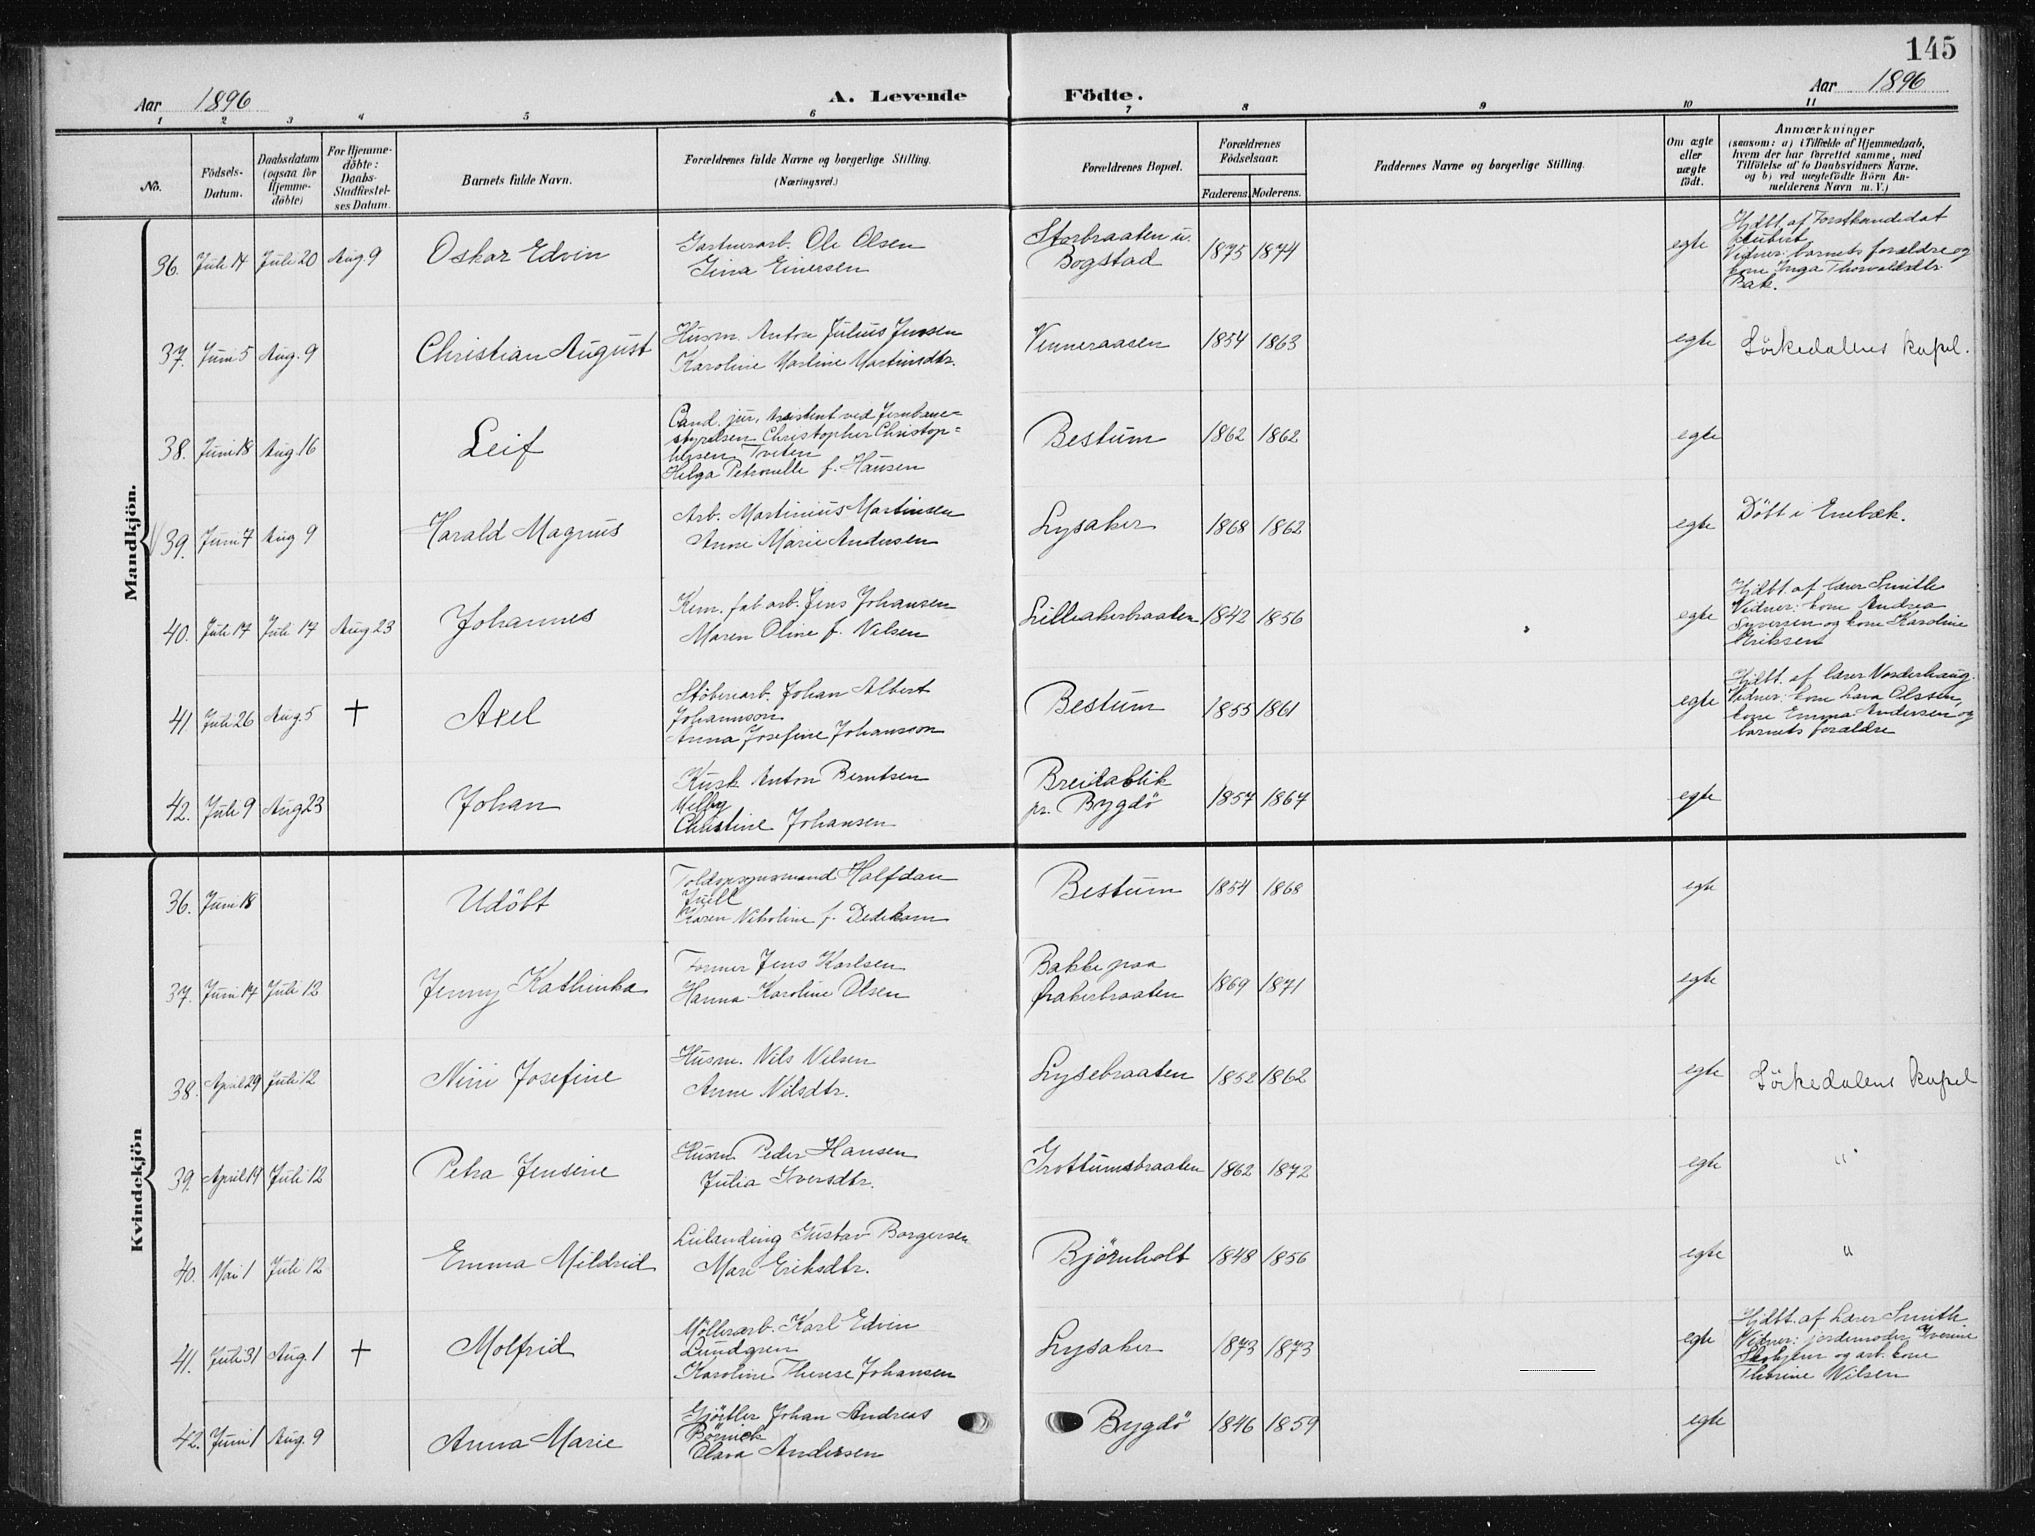 145
Aar 1896 A. Levende Födte. Aar 1896
1 2 3 4 5 6 7 8 9 10 11
No.
Födsels-
Datum.
Daabsdatum
(ogsaa for
Hjemme-
döbte)
For Hjemme-
döbte:
Daabs-
Stadfæstel-
ses Datum.
Barnets fulde Navn.
Forældrenes fulde Navne og borgerlige Stilling.
(Næringsvei.)
Forældrenes Bopæl.
Forældrenes
Födselsaar.
Faderens. Moderens.
Faddernes Navne og borgerlige Stilling.
Om ægte
eller
uægte
födt.
Anmærkninger
(saasom: a) i Tilfælde af Hjemmedaab,
hvem der har forrettet samme, med
Tilföielse af to Daabsvidners Navne.
og b) ved uægtefödte Börn An-
melderens Navn m. V.)
Mandkjön.
36. Juli 14 Juli 20 Aug. 9 Oskar Edvin
Gartnerarb. Ole Olsen
Gina Einersen
Storbraaten u.
Bogstad
1875 1874 egte
Hjdbt. af Forstkandidat
Vidner: barnets forældre og
kone Inga Thorvaldsdtr.
Bak.
37. Juni 5 Aug. 9 Christian August
Husm. Anton Julius Jensen
Karoline Martine Martinsdtr.
Venneraasen 1854 1863 egte Sörkedalens kapel.
38. Juni 18 Aug. 16 Leif
Cand. jur, Assistent ved Jernbane-
styrelsen Christopher Christop-
hersen Tveten
Helga Petronelle f. Hansen
Bestum 1862 1862 egte
39. Juni 7 Aug 9 Harald Magnus
Arb. Martinius Martinsen
Anne Marie Andersen
Lysaker 1868 1862 egte Döbt i Enebak.
40. Juli 17 Juli 17 Aug 23 Johannes
Kem. fab arb. Jens Johansen
Maren Oline f. Nilsen
Lilleakerbraaten 1842 1856 egte
Hjdbt. af lærer Smith
Vidner: kone Andrea
Syversen og kone Karoline
Eriksen
41. Juli 26 Aug. 5 + Axel
Støberiarb. Johan Albert
Johannson
Anna Josefine Johansson
Bestum 1855 1861 egte
Hjdbt. af lærer Vorderhaug.
Vidner: kone Lara Olssen,
kone Emma Andersen og
barnets forældre
42. Juli 9 Aug 23 Johan
Kusk Anton Berntsen
Melby
Christine Johansen
Breidablik
pr. Bygdö
1857 1867 egte
Kvindekjön
36. Juni 18 Udöbt
Toldopsynsmand Halfdan
Juell
Karen Nikoline f. Dedekam
Bestum 1854 1868 egte
37. Juni 14 Juli 12 Jenny Kathinka
Former Jens Karlsen
Hanna Karoline Olsen
Bakke paa
Ørakerbraaten
1869 1871 egte
38. April 29 Juli 12 Nini Josefine
Husm. Nils Nilsen
Anne Nilsdtr.
Lysebraaten 1852 1862 egte Sörkedalens kapel
39. April 14 Juli 12 Petra Jensine
Husm Peder Hansen
Julia Iversdtr.
Grottumsbraaten 1862 1872 egte "
40. Mai 1 Juli 12 Emma Mildrid
Leilending Gustav Borgersen
Mari Eriksdtr.
Björnholt 1848 1856 egte "
41. Juli 31 Aug. 1 + Molfrid
Möllerarb. Karl Edvin
Lundgren
Karoline Therese Johansen
Lysaker 1873 1873 egte
Hjdbt. af Lærer Smith
Vidner: jordemoder Iverine
og arb. kone
Thorine Nilsen
42. Juni 1 Aug. 9 Anna Marie
Gjörtler Johan Andreas
Börnick
Clara Andersen
Bygdö 1846 1859 egte